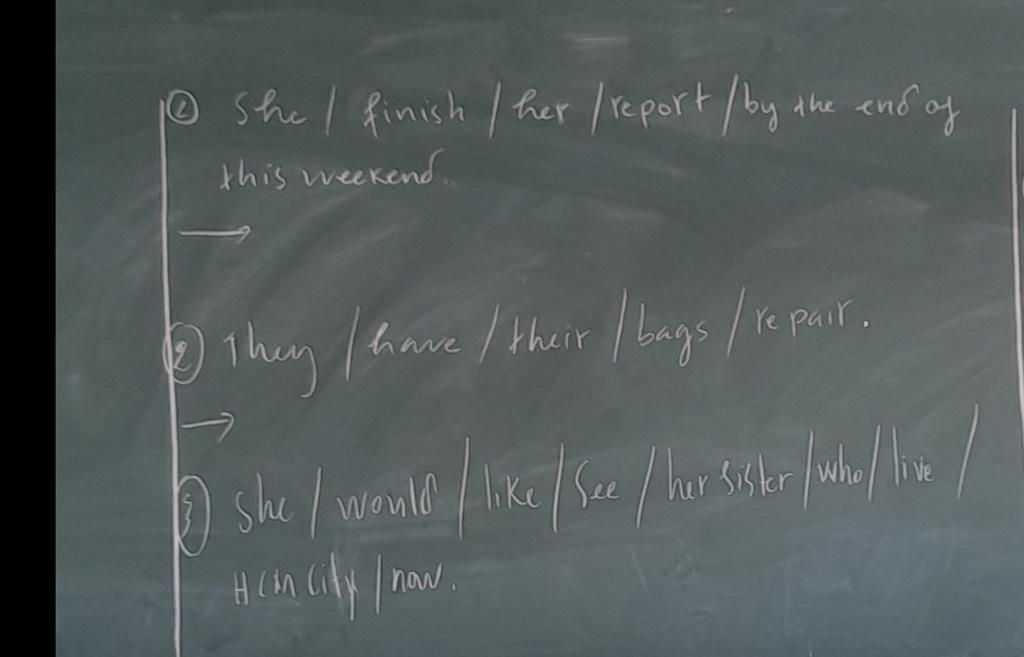 ① She / finish / her / report / by the end of
this weekend.
→
② They / have / their / bags / repair.
→
③ She / would / like / see / her sister / who / live /
HCM City / now.